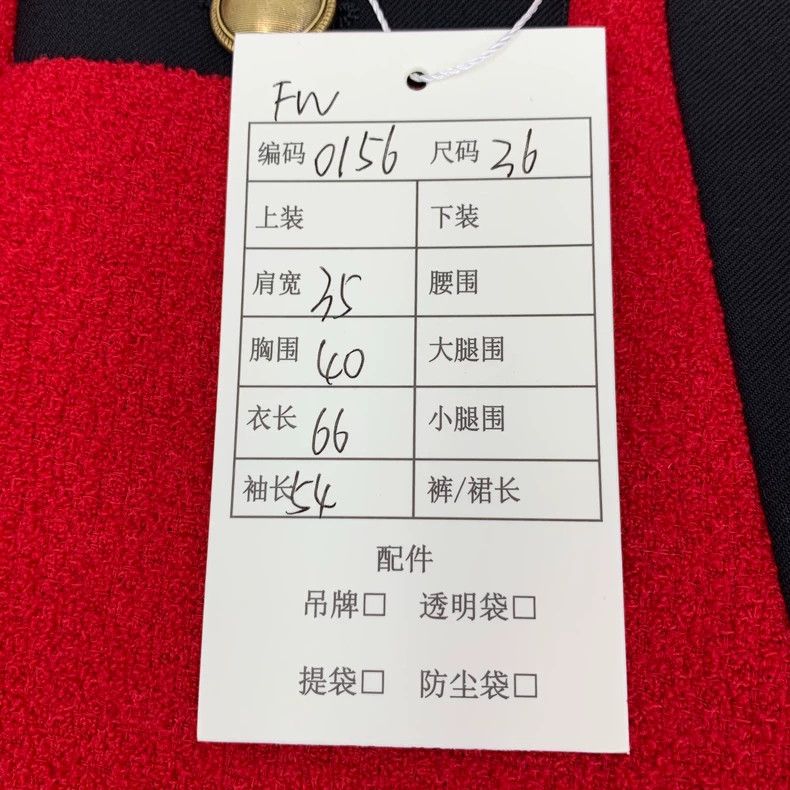 FW
编码 0156 尺码 36
上装 下装
肩宽 35 腰围
胸围 40 大腿围
衣长 66 小腿围
袖长 54 裤/裙长
配件
吊牌□ 透明袋□
提袋□ 防尘袋□